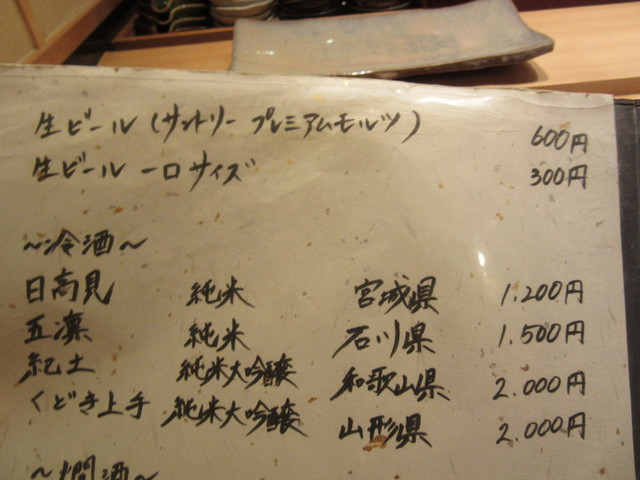 生ビール(サントリー プレミアムモルツ) 600円
生ビール 一口サイズ 300円
～冷酒～
日高見 純米 宮城県 1.200円
五凛 純米 石川県 1.500円
紀土 純米大吟醸 和歌山県 2.000円
くどき上手 純米大吟醸 山形県 2.000円
～燗酒～